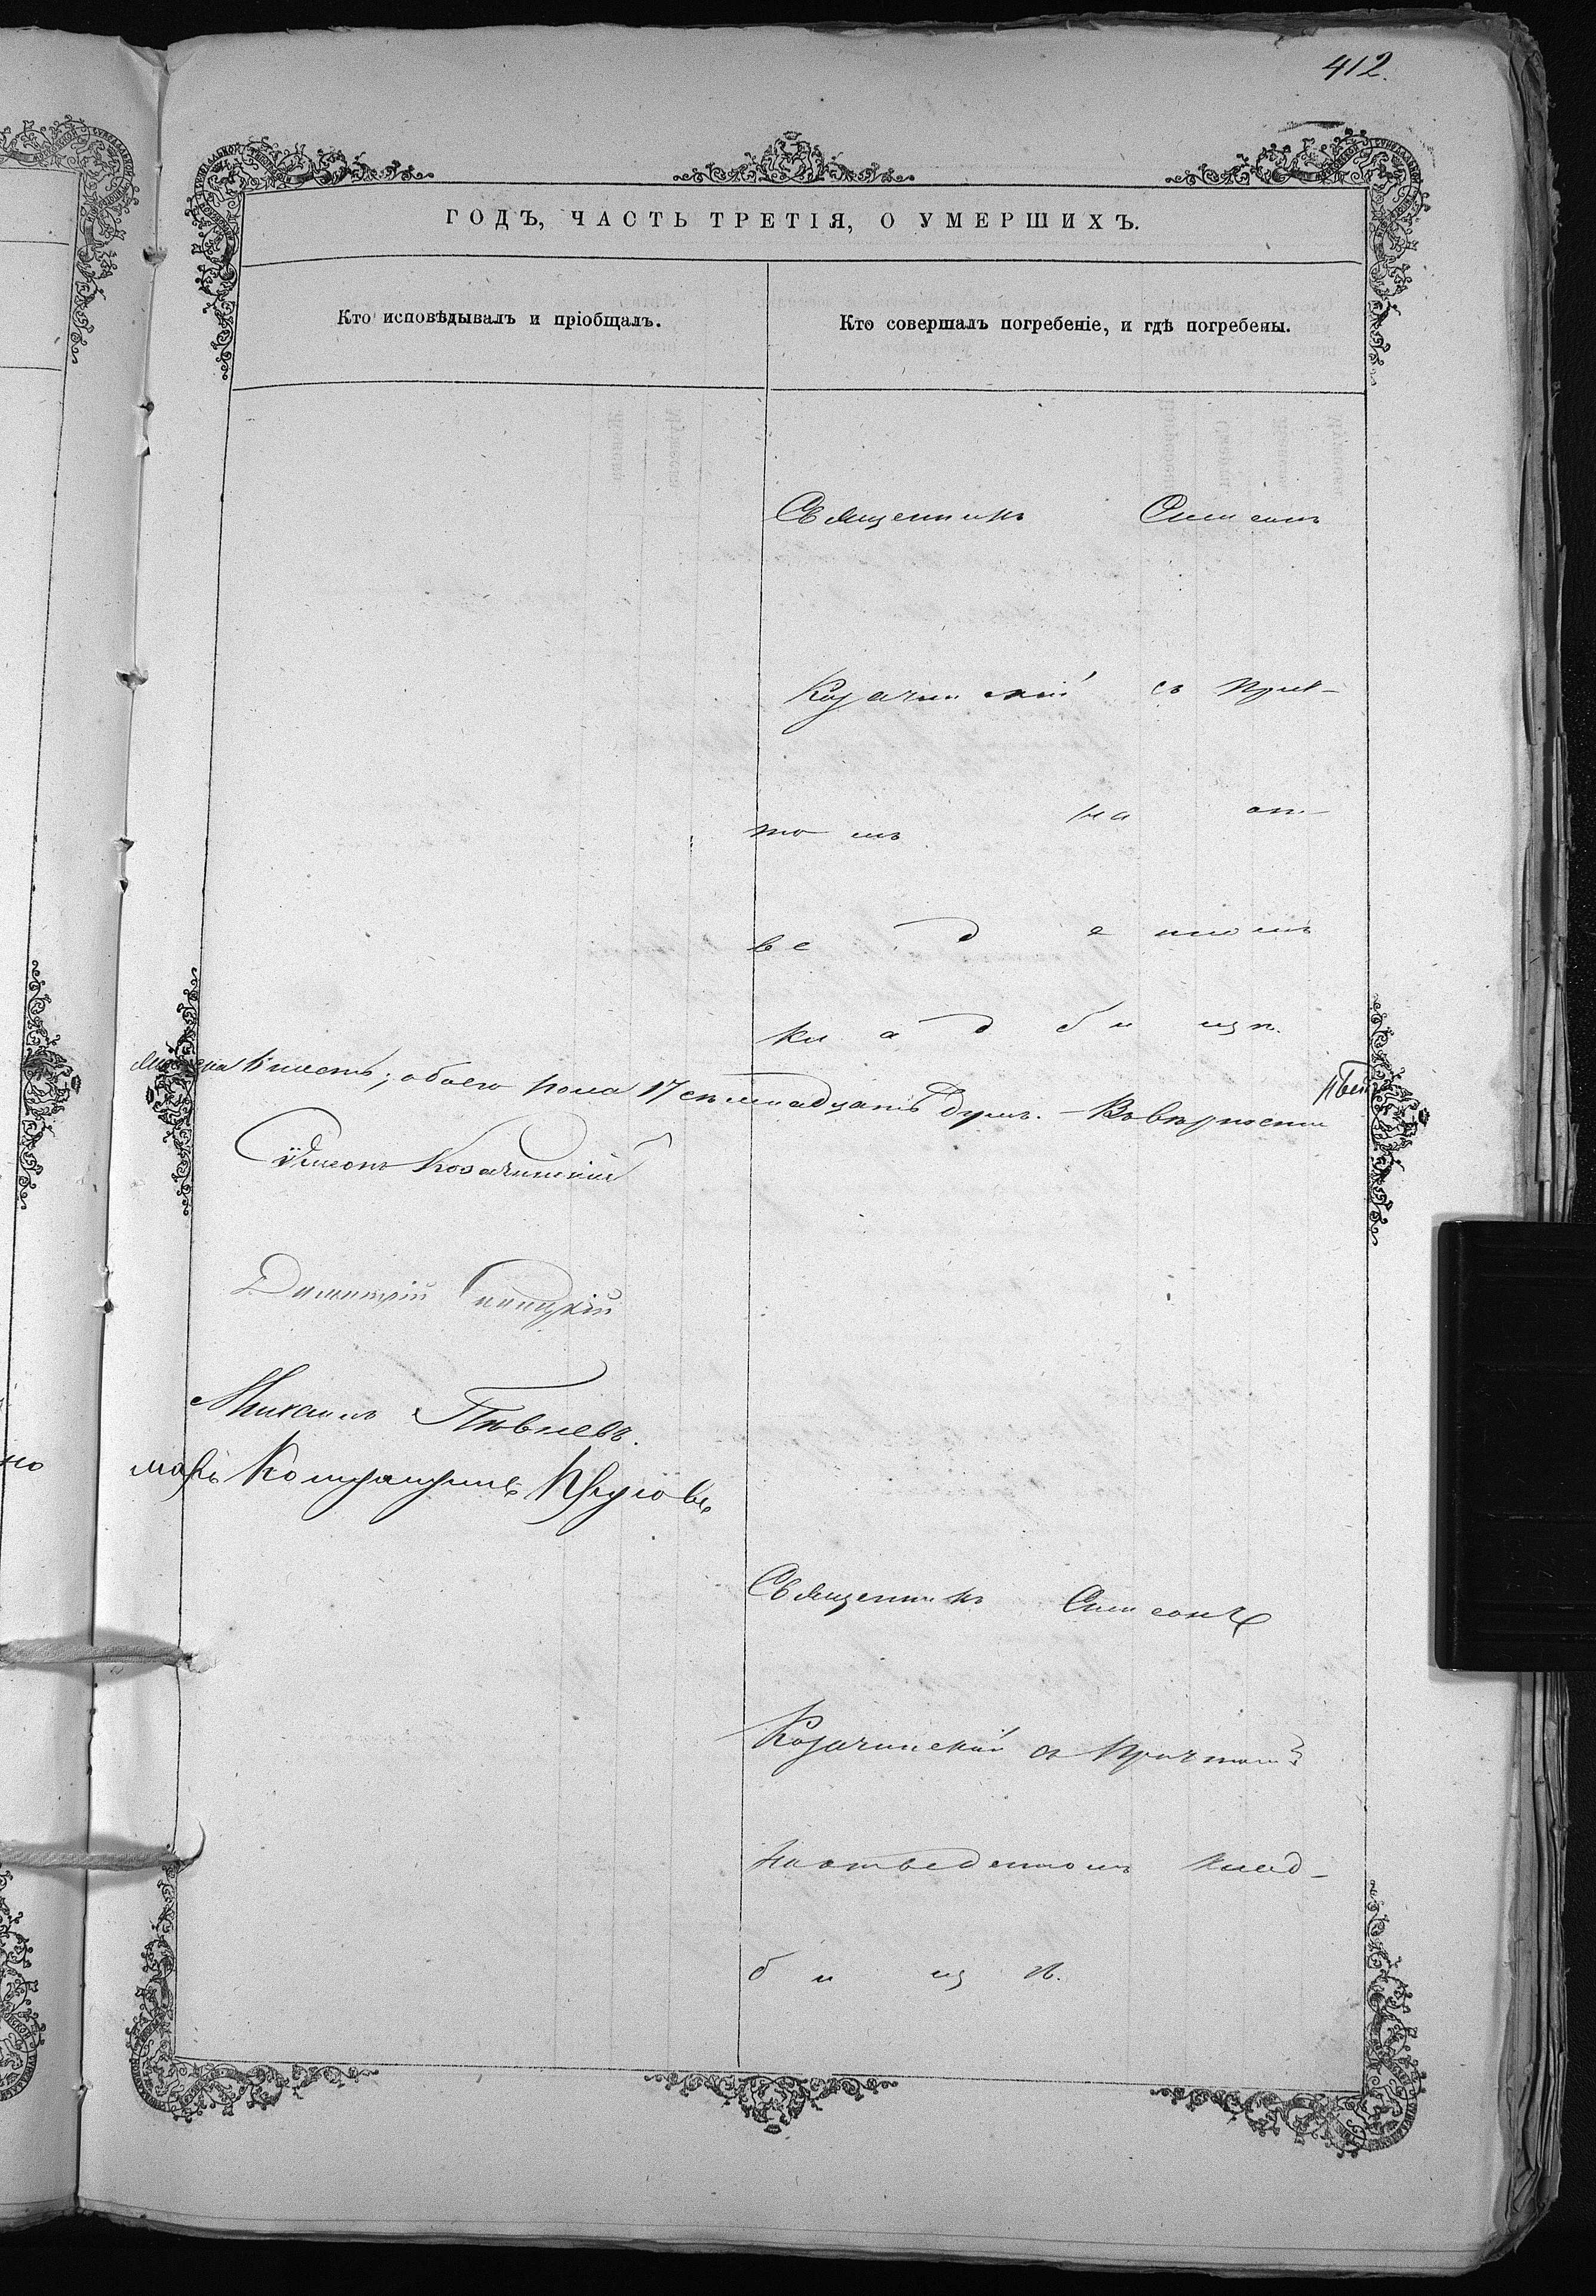 412.
ГОДЪ, ЧАСТЬ ТРЕТІЯ, О УМЕРШИХЪ.
Кто исповѣдывалъ и пріобщалъ.
Кто совершалъ погребеніе, и гдѣ погребены.
Священникъ Симеонъ
Козачинскій съ прич-
томъ на от-
ве д е нномъ
кл а д б и щѣ.
обоего пола 17 семнадцать душъ. – Въ вѣрности
Симеонъ Козачинскій
Димитрій
Михаилъ Пѣвневъ.
Священникъ Симеонъ
Козачинскій съ причтомъ
на отведенномъ клад-
б и щ ѣ.